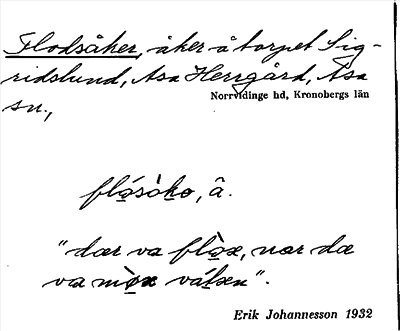 Flodsåker, åker å torpet Sig-
ridslund, Asa Herrgård, Asa
Norrvidinge hd, Kronobergs län
sn.,
flǫ́såkǝ, â.
"dær va flọ̀ǝ, nær dǝ
va mọ̀ǝ vátǝn".
Erik Johannesson 1932